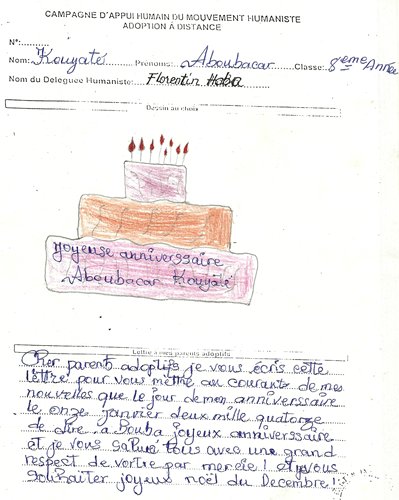 CAMPAGNE D'APPUI HUMAIN DU MOUVEMENT HUMANISTE
ADOPTION À DISTANCE
N°:
Nom: Kouyaté Prénoms: Aboubacar Classe: 8ème Année
Nom du Déléguée Humaniste: Florentin Haba
Dessin au choix
yoyeuse anniverssaire
Aboubacar Kouyaté
Lettre à mes parents adoptifs
Cher parents adoptifs je vous écris cette
lettre pour vous mettre au courante de mes
nouvelles que le jour de mon anniverssaire
le onze janvier deux mille quatorze
de dire à Bouba joyeux anniverssaire
et je vous salue tous avec une grand
respect de vortre par mercie! et vous
souhaiter joyeux noël du Decembre!